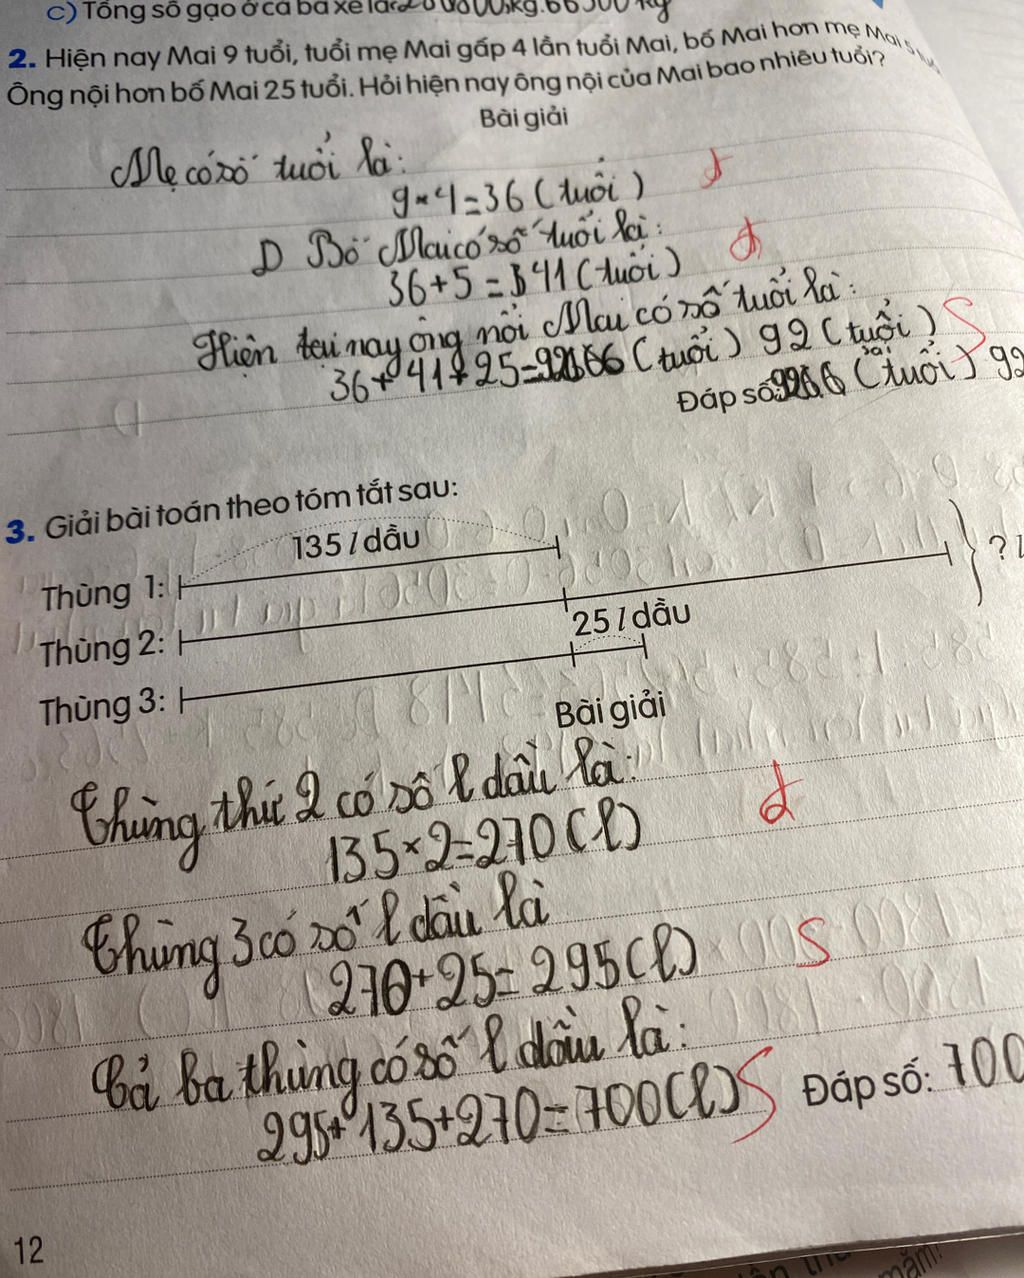 c) Tổng số gạo ở cả ba xe là kg. 66500 kg
2. Hiện nay Mai 9 tuổi, tuổi mẹ Mai gấp 4 lần tuổi Mai, bố Mai hơn mẹ Mai 5
Ông nội hơn bố Mai 25 tuổi. Hỏi hiện nay ông nội của Mai bao nhiêu tuổi?
Bài giải
Mẹ có số tuổi là:
9 × 4 = 36 (tuổi) đ
Bố Mai có số tuổi là:
36 + 5 = 41 (tuổi) đ
Hiện nay ông nội Mai có số tuổi là:
36 + 41 + 25 = 66 (tuổi) 92 (tuổi) S
Đáp số: 66 (tuổi) 92
3. Giải bài toán theo tóm tắt sau:
135 l dầu
Thùng 1:
? l
Thùng 2:
25 l dầu
Thùng 3:
Bài giải
Thùng thứ 2 có số l dầu là:
135 × 2 = 270 (l) đ
Thùng 3 có số l dầu là
270 + 25 = 295 (l) S
Cả ba thùng có số l dầu là:
295 + 135 + 270 = 700 (l) S Đáp số: 700
12